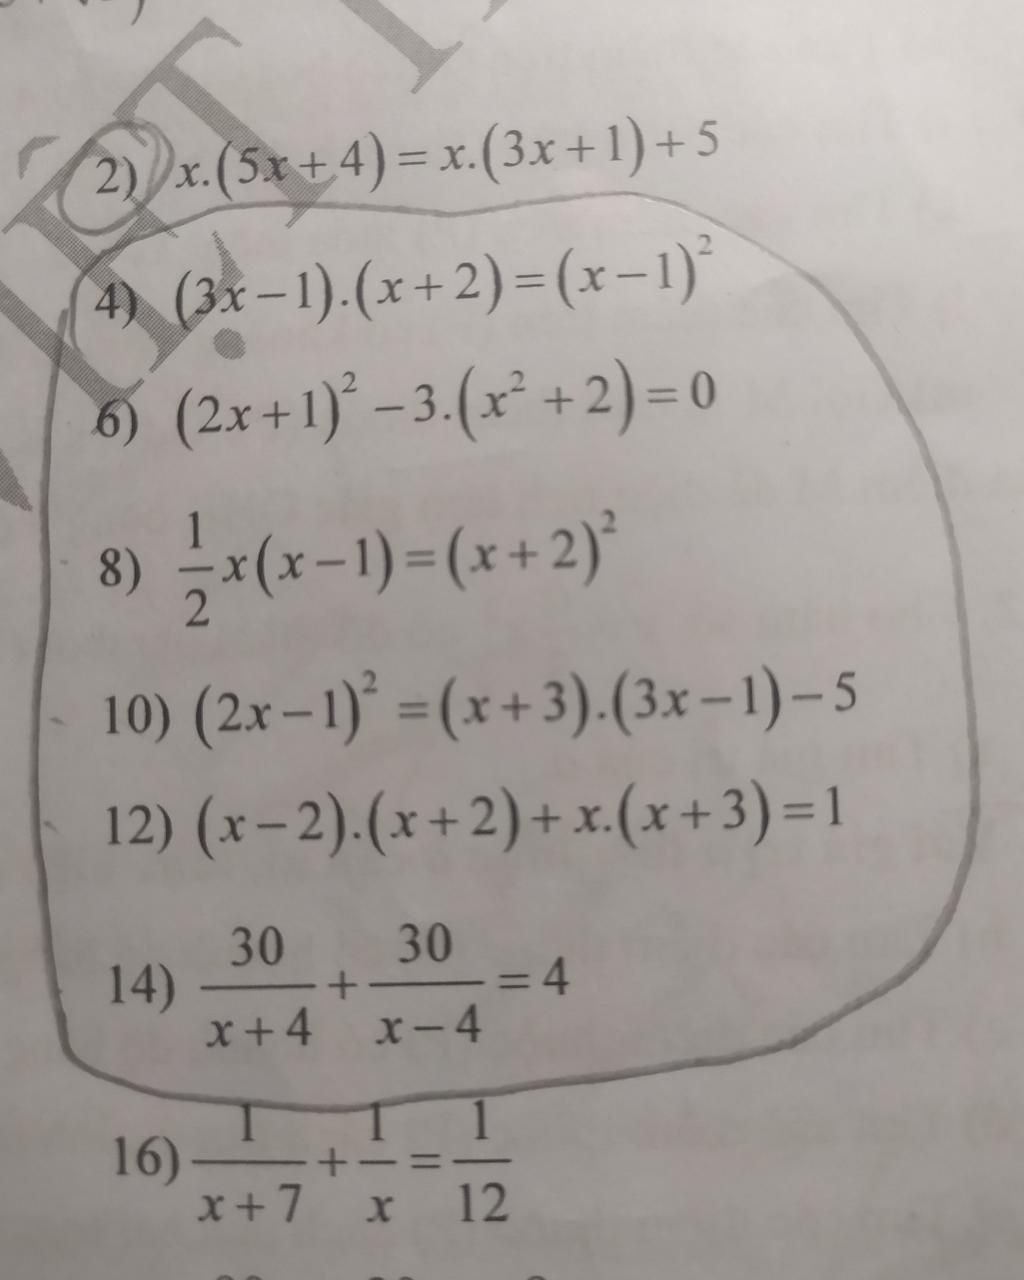 2) x.(5x+4)=x.(3x+1)+5
4) (3x−1).(x+2)=(x−1)²
6) (2x+1)²−3.(x²+2)=0
8) 1/2 x(x−1)=(x+2)²
10) (2x−1)²=(x+3).(3x−1)−5
12) (x−2).(x+2)+x.(x+3)=1
14) 30/(x+4)+30/(x−4)=4
16) 1/(x+7)+1/x=1/12